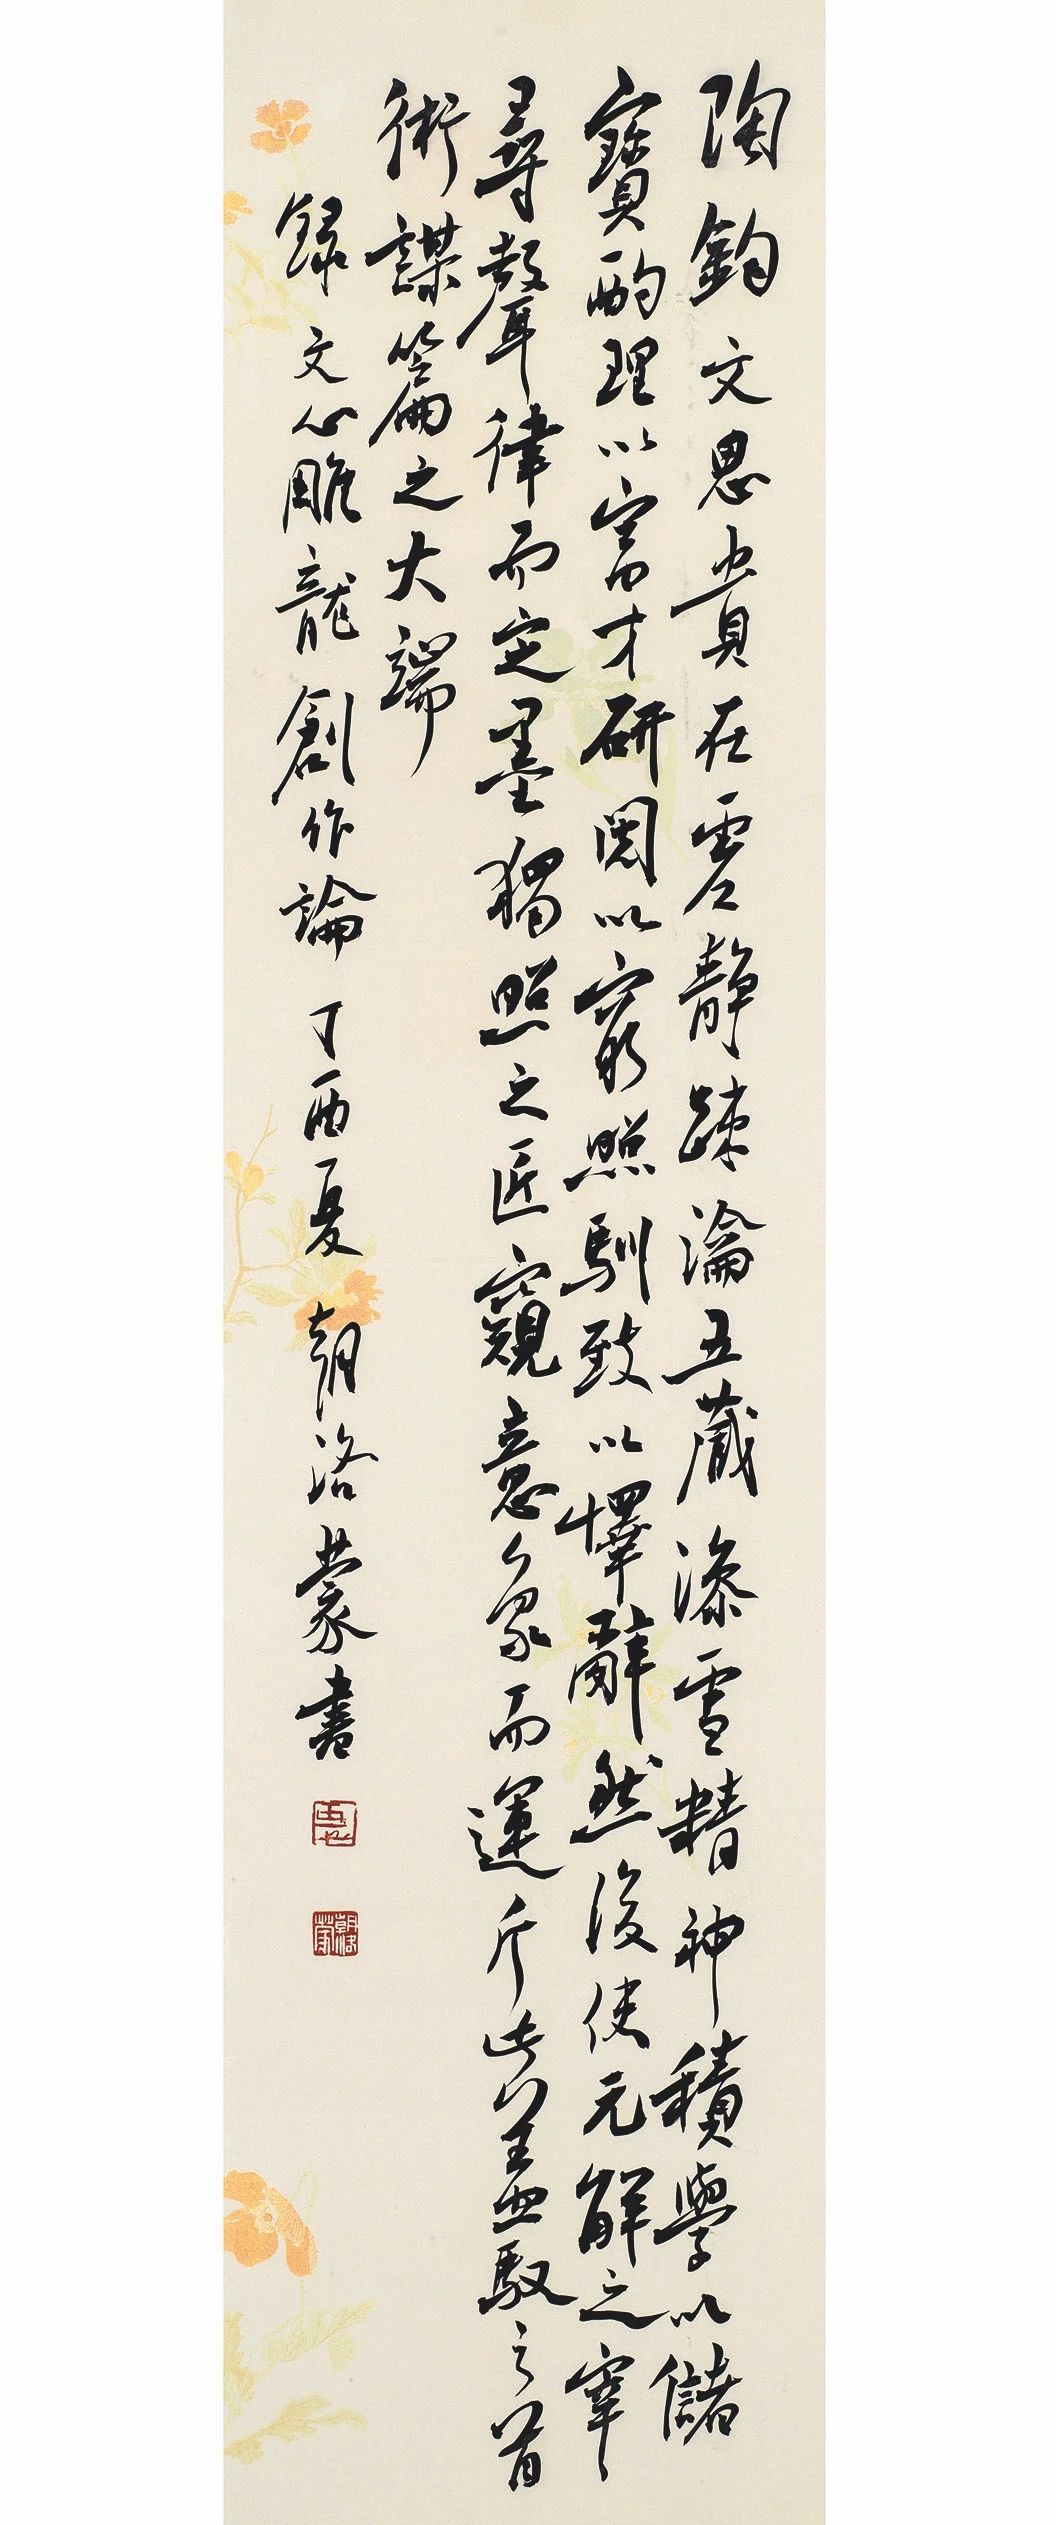 陶鈞文思貴在虛靜疏瀹五藏澡雪精神積學以儲
寶酌理以富才研閱以窮照馴致以懌辭然後使元解之宰
尋聲律而定墨獨照之匠窺意象而運斤此蓋馭文之首
術謀篇之大端
錄文心雕龍創作論丁酉夏朝洛蒙書